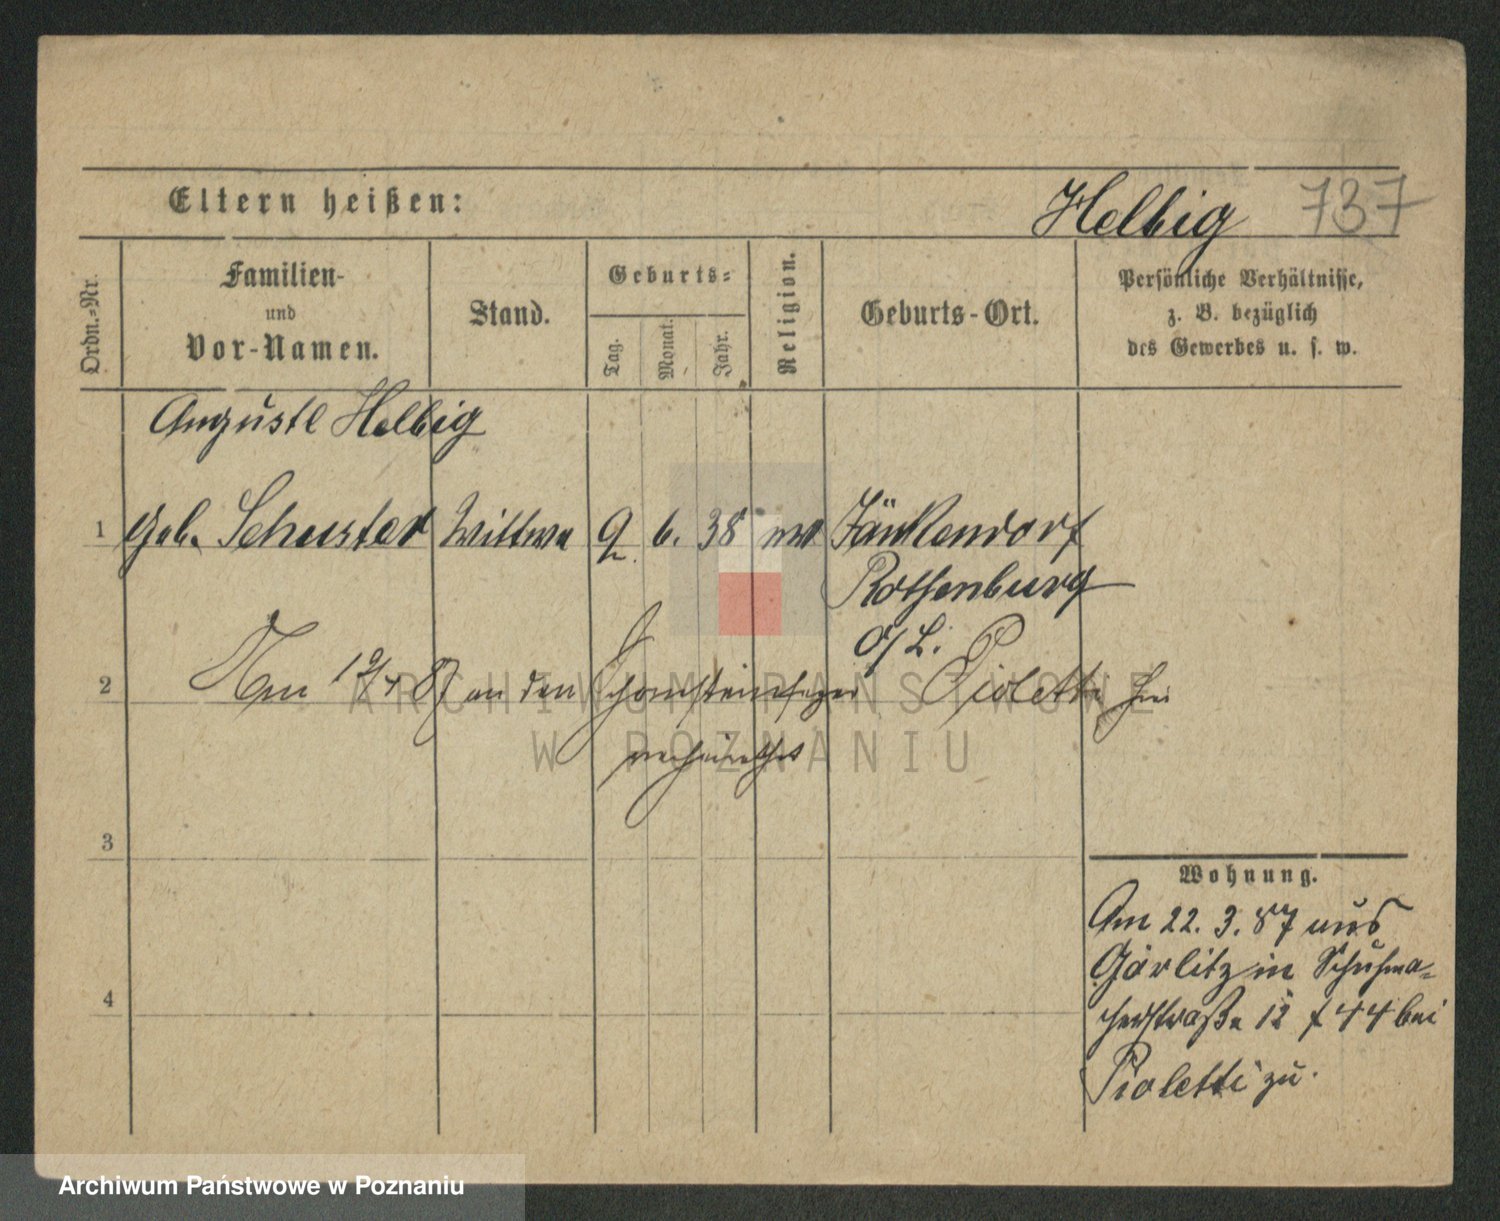 Eltern heißen:
Helbig 737
Ordn.=Nr.
Familien-
und
Vor-Namen.
Stand.
Geburts=
Tag.
Monat.
Jahr.
Religion.
Geburts-Ort.
Persönliche Verhältnisse,
z. B. bezüglich
des Gewerbes u. s. w.
Auguste Helbig
1 geb. Schuster Wittwe 9. 6. 38 Jänkendorf
Rothenburg
O/L.
2 Am 19/4 87 an den Schornsteinfeger Pioletti hier
verheirathet
3
Wohnung.
Am 22. 3. 87 aus
Görlitz in Schuhma-
cherstraße 12 f 44 bei
Pioletti zu.
4
ARCHIWUM PAŃSTWOWE
W POZNANIU
Archiwum Państwowe w Poznaniu